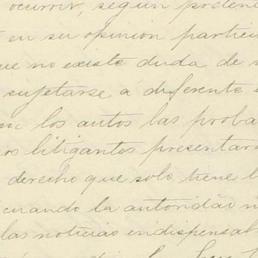 ocurrir, segun
en su opinion particu
que no existe duda de
sujetarse a diferente
los autos las proba
os litigantes presentar
derecho que solo tiene l
cuando la autoridad n
las noticias indispensab